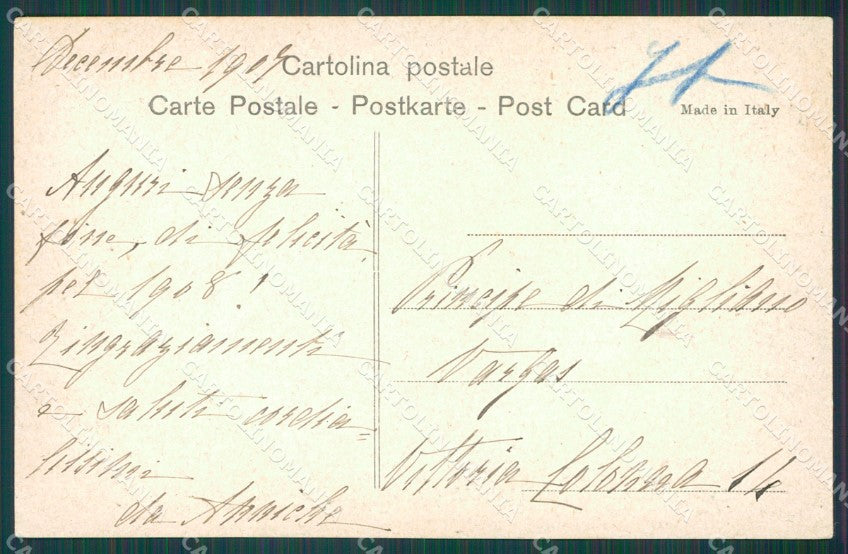 Decembre 1907
Cartolina postale
Carte Postale - Postkarte - Post Card
Made in Italy
Auguri senza
fine, di felicità
per 1908!
Ringraziamenti
e saluti cordia=
lissimi
da
Principe di Migliano
Vargas
Vittoria Colonna 14
CARTOLINOMANIA